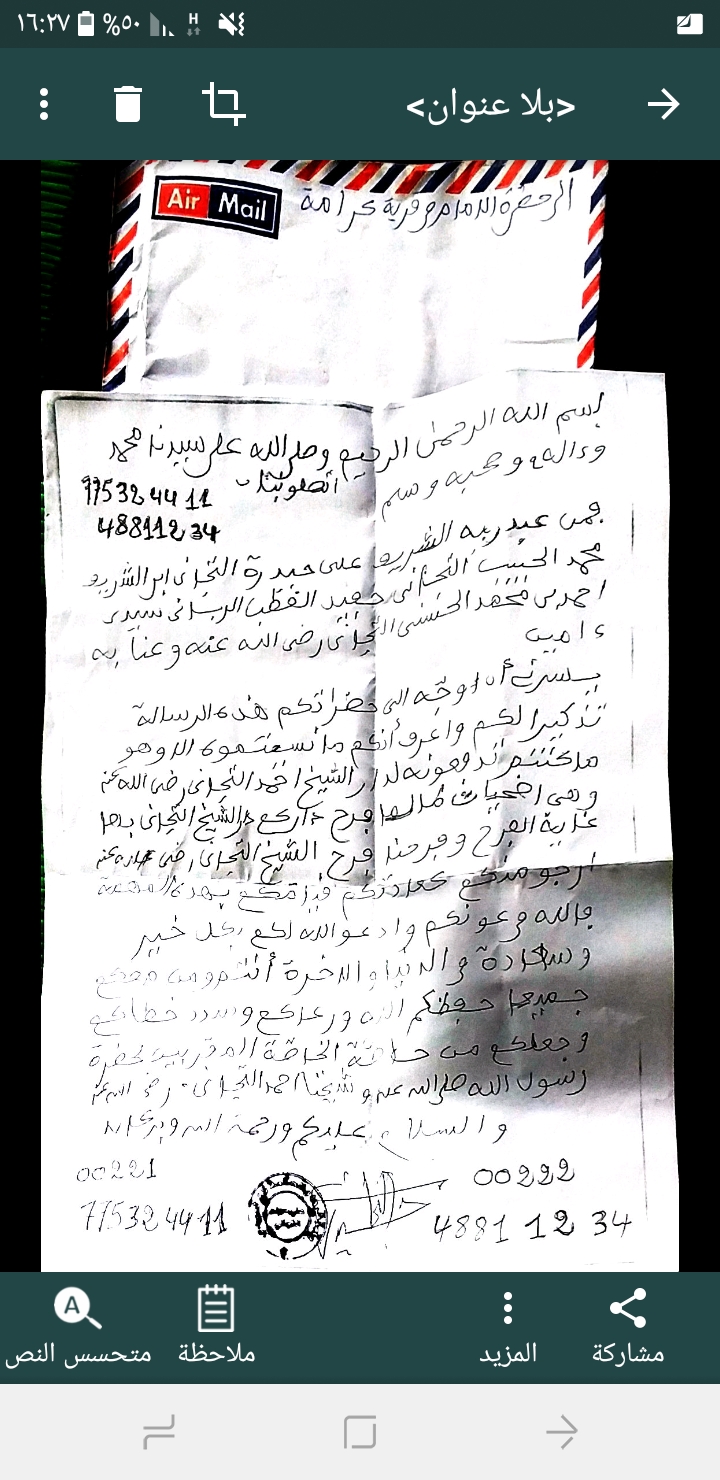 ١٦:٢٧ %٥٠ H
<بلا عنوان>
Air Mail
الى حضرة الامام قرية كرامة
بسم الله الرحمن الرحيم وصل الله على سيدنا محمد
وءاله وصحبه وسلم
77532 44 11
488112 34
فمن عبد ربه الشريف على حيدرة التجانى ابن الشريف
محمد الحبيب التجانى حفيد القطب الربانى سيدى
احمد بن محمد الحسنى التجانى رضى الله عنه وعنا به
ءامين
يسرنى أن اوجه الى حضراتكم هذه الرسالة
تذكيرا لكم واعرف أنكم ما نسيتموه الا وهو
ما كنتم تدفعونه لدار الشيخ احمد التجانى رضى الله عنه
وهى اضحيات فرح الشيخ التجانى بها
غاية الفرح وفرحنا فرح الشيخ التجانى رضى الله عنه
ارجو منكم كعادتكم قيامكم بهذه المهمة
فالله فى عونكم وادعو الله لكم بكل خير
وسعادة فى الدنيا والاخرة أنتم ومن معكم
جميعا حفظكم الله ورعاكم وسدد خطاكم
وجعلكم من خاصة الخاصة المقربين لحضرة
رسول الله صلى الله عليه وشيخنا احمد التجانى رضى الله عنه
والسلام عليكم ورحمة الله وبركاته
00221 00222
77532 44 11 4881 12 34
متحسس النص ملاحظة المزيد مشاركة